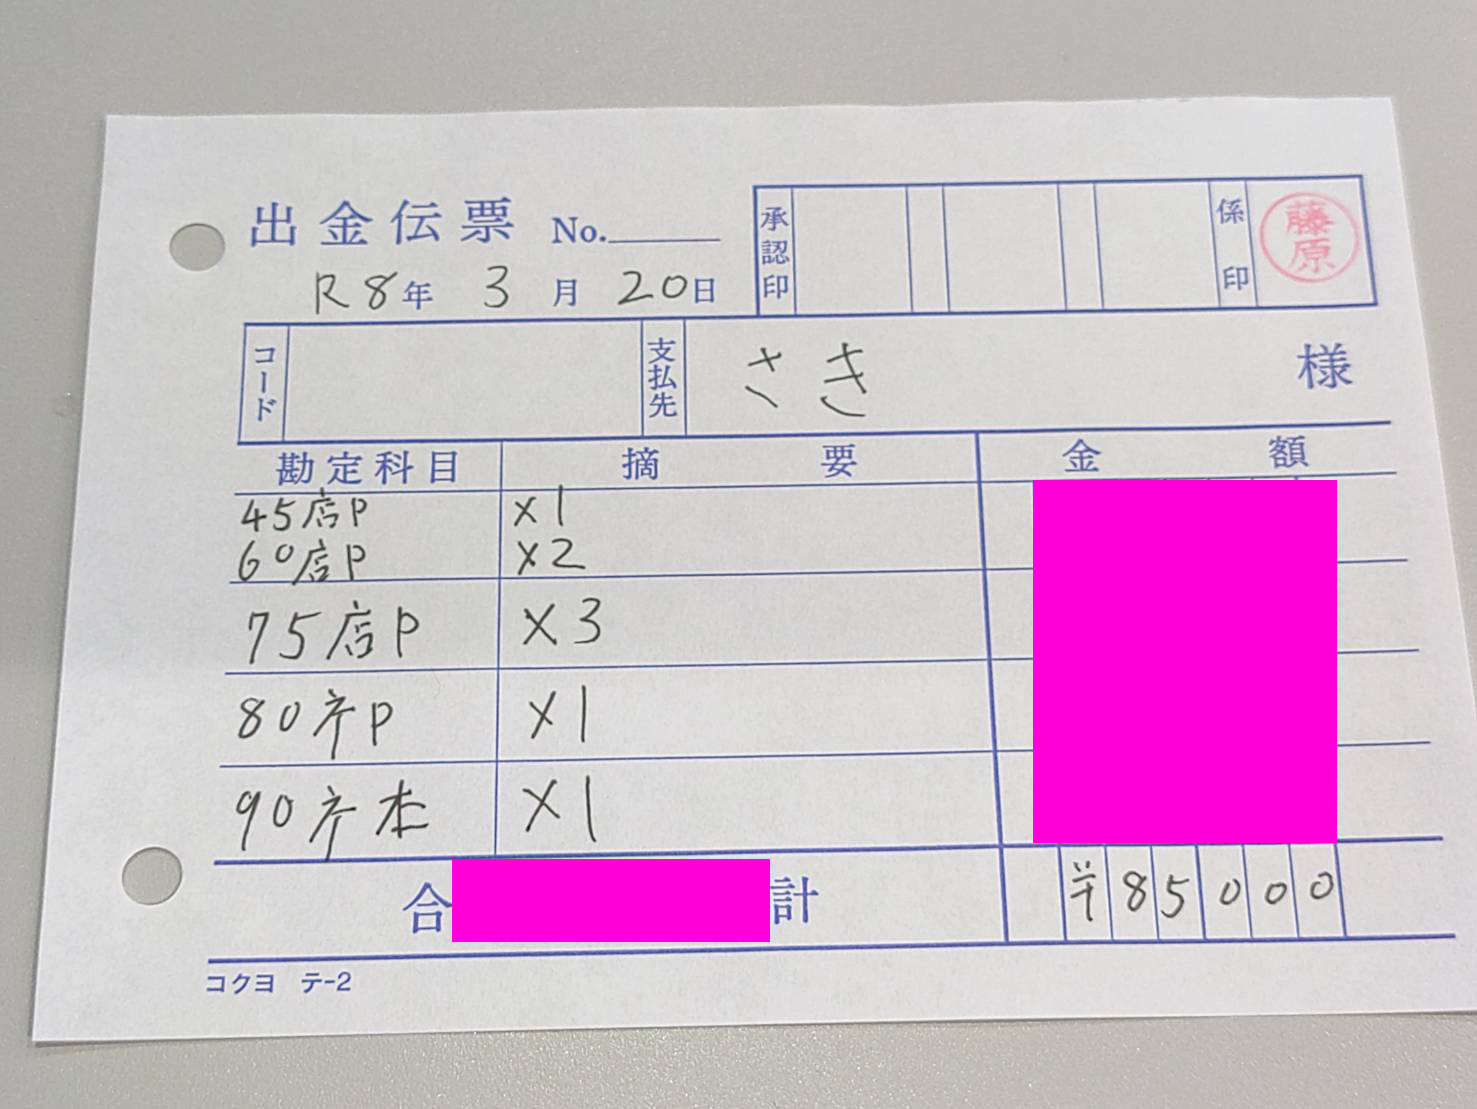 出金伝票 No.
R8年 3月 20日
承認印
係印
藤原
コード
支払先 さき 様
勘定科目 摘要 金額
45店P ×1
60店P ×2
75店P ×3
80斤P ×1
90斤本 ×1
合計 ¥85000
コクヨ テ-2